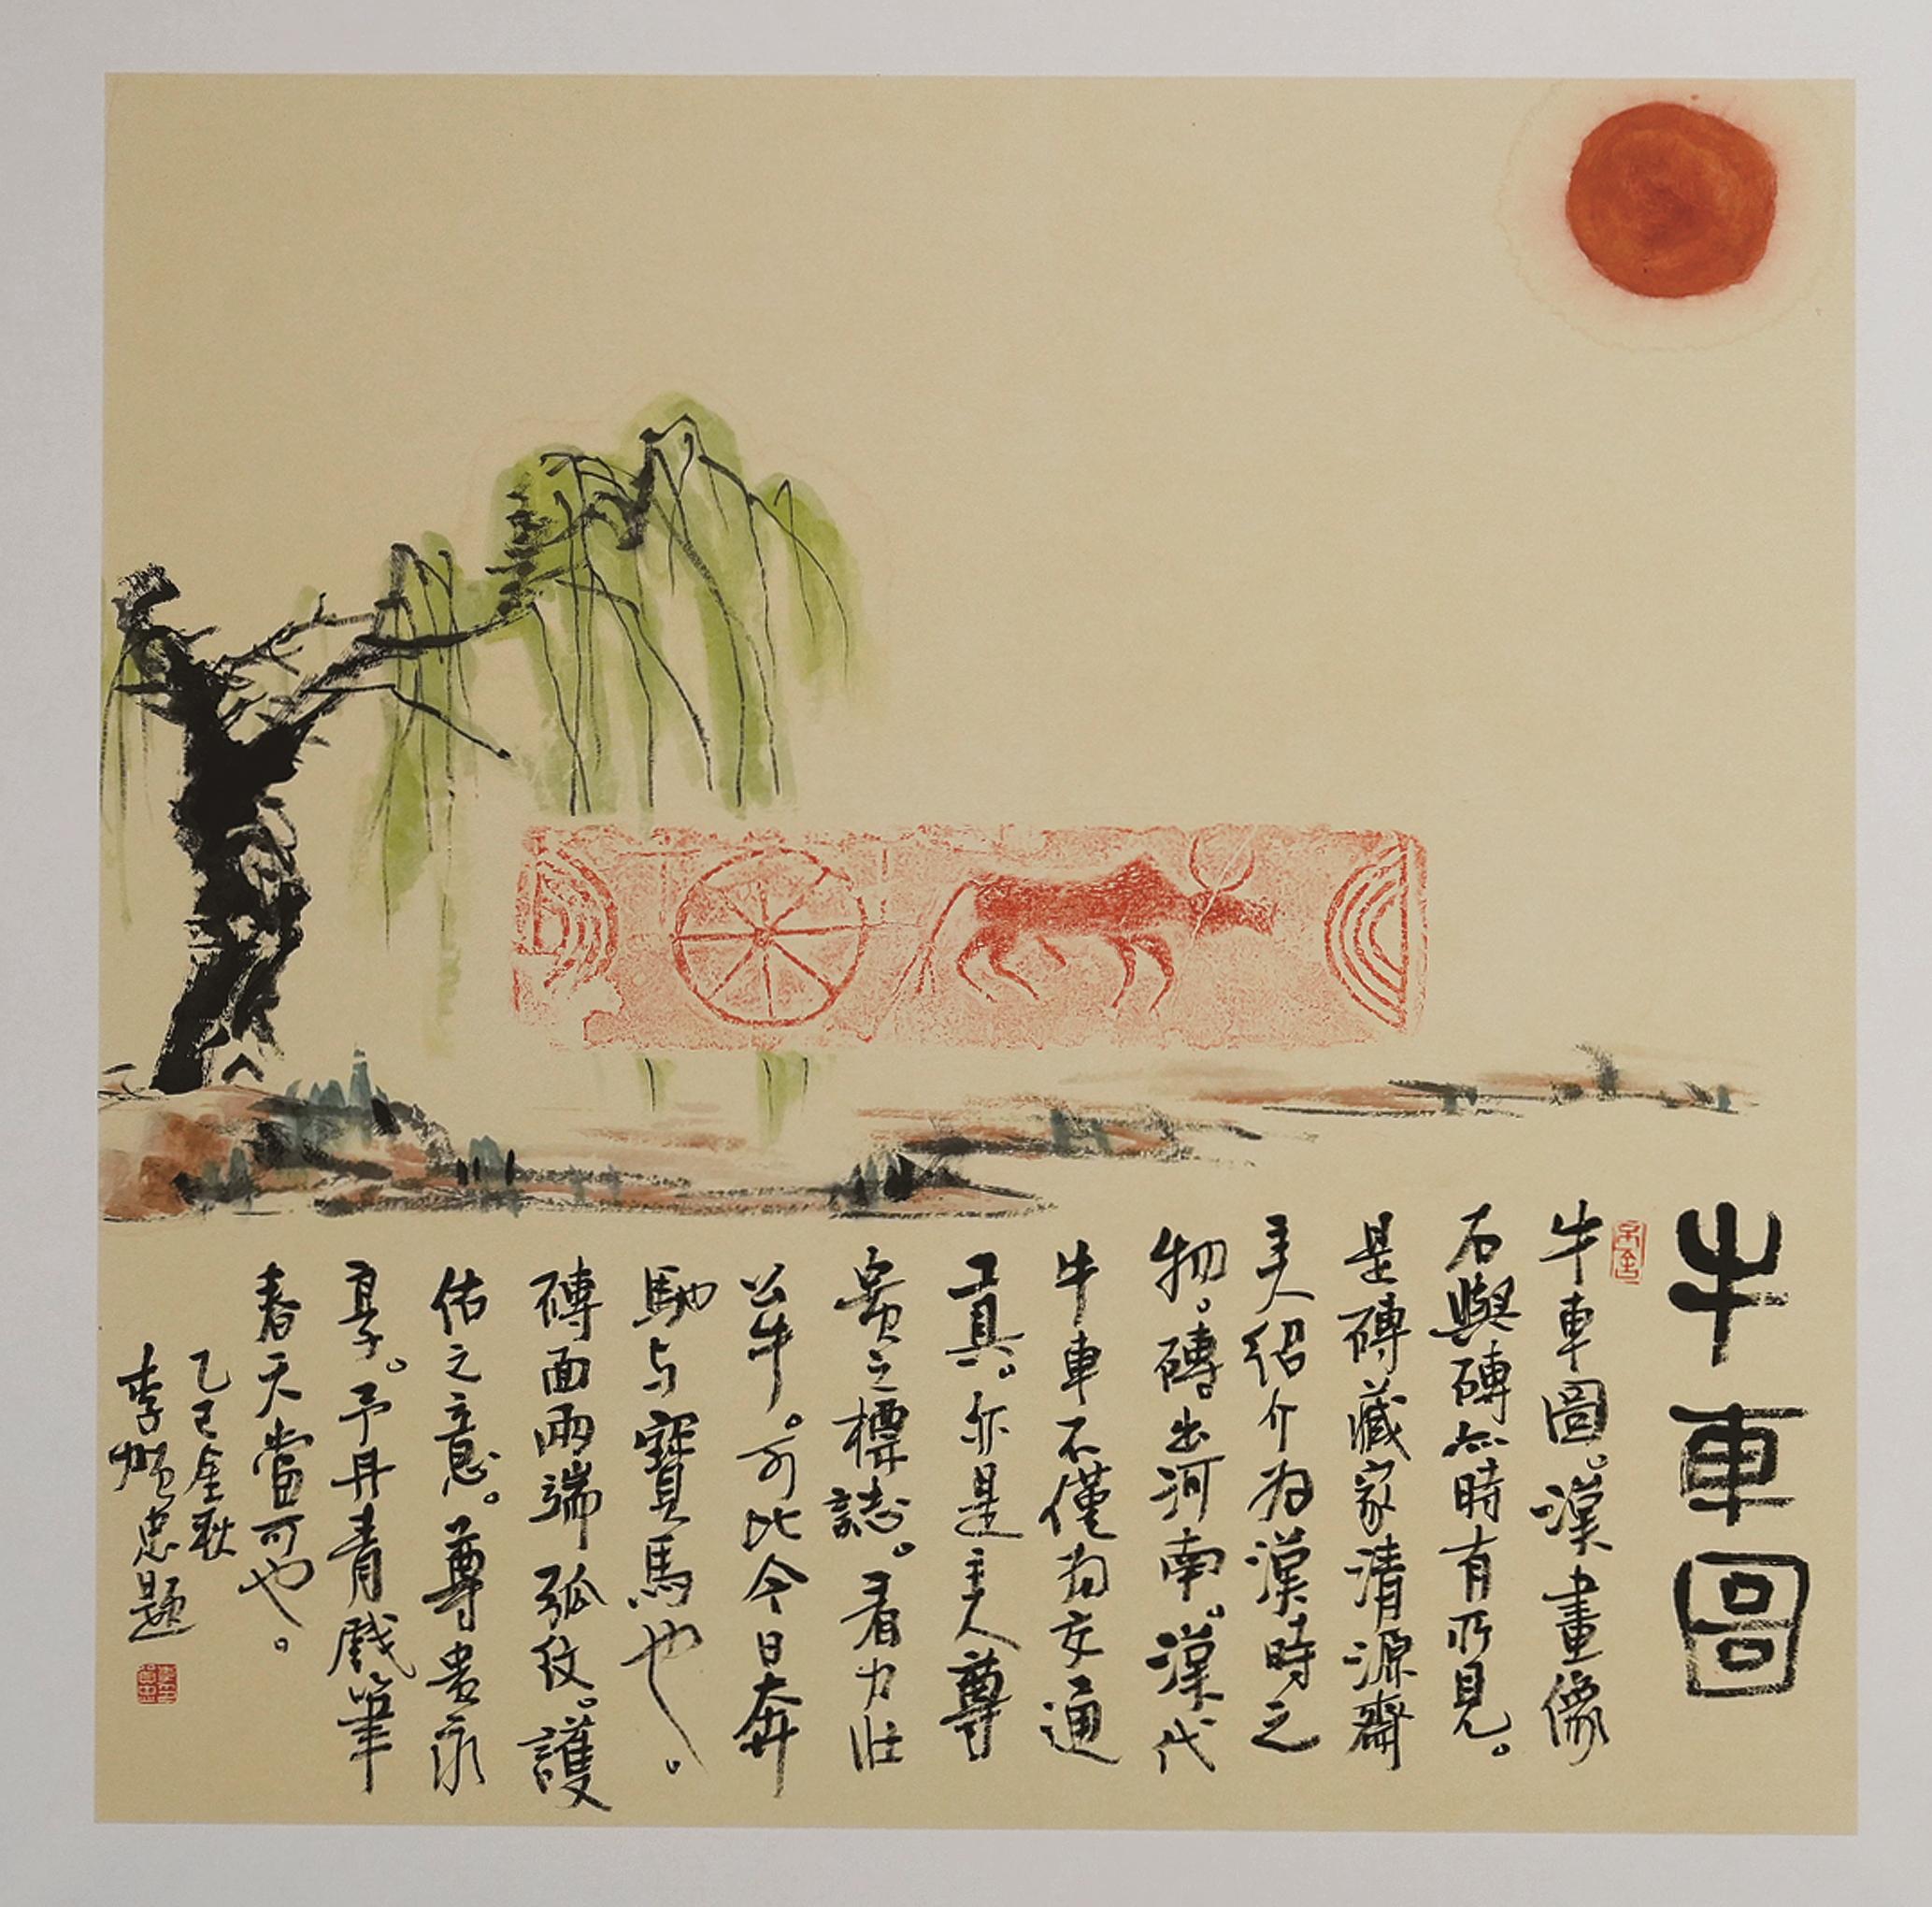 牛車圖
牛車圖。漢畫像
石與磚無時有所見。
是磚藏家清源齋
主人紹介为漢時之
物。磚出河南。漢代
牛車不僅为交通
工具。亦是主人尊
貴之標誌。看力壯
公牛。可比今日奔
馳与寶馬也。
磚面兩端弧紋。護
佑之意。尊貴永
享。予丹青戲筆
春天當可也。
乙巳金秋
李順忠題